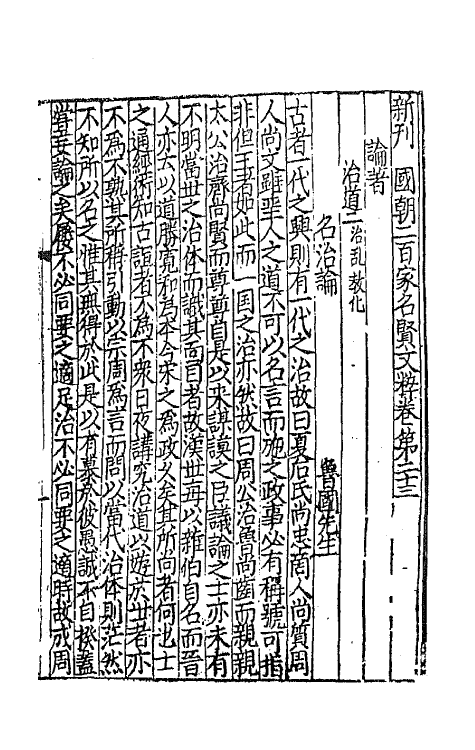 新刊國朝二百家名賢文粹卷第二十三
論著
治道二治亂教化
名治論 魯國先生
古者一代之興則有一代之治故曰夏后氏尚忠商人尚質周
人尚文雖聖人之道不可以名言而施之政事必有稱號可指
非但王者如此而一國之治亦然故曰周公治魯尚齒而親親
太公治齊尚賢而尊尊自是以來謀謨之臣議論之士亦未有
不明當世之治體而識其面目者故漢世再以雜伯自名而晉
人亦六以道勝寬和爲本今宋之爲政久矣其所向者何也士
之通經術知古誼者不爲不衆日夜講究治道以遊於世者亦
不爲不熟其所稱引動以宗周爲言而問以當代治體則茫然
不知所以名之惟其無得於此是以有慕於彼愚誠不自揆蓋
嘗妄論之矣屨不必同要之適足治不必同要之適時故成周